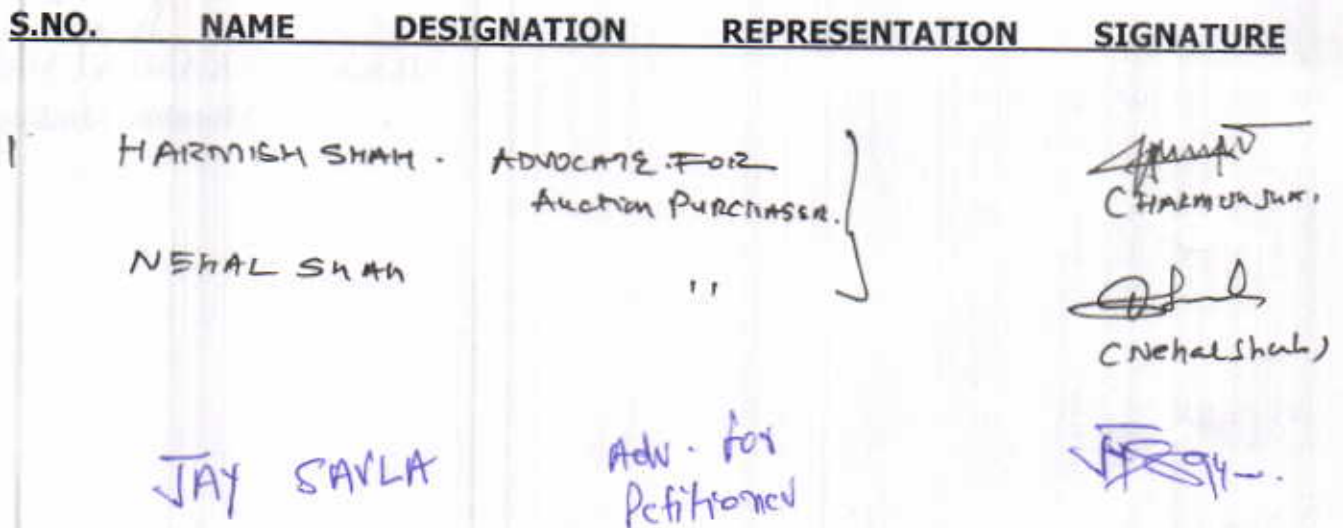 S.NO. NAME DESIGNATION REPRESENTATION SIGNATURE
1 HARMISH SHAH. ADVOCATE FOR
Auction PURCHASER.
(HARMISH SHAH.
NEHAL SHAH ''
(Nehal Shah)
JAY SAVLA Adv. for
Petitioner